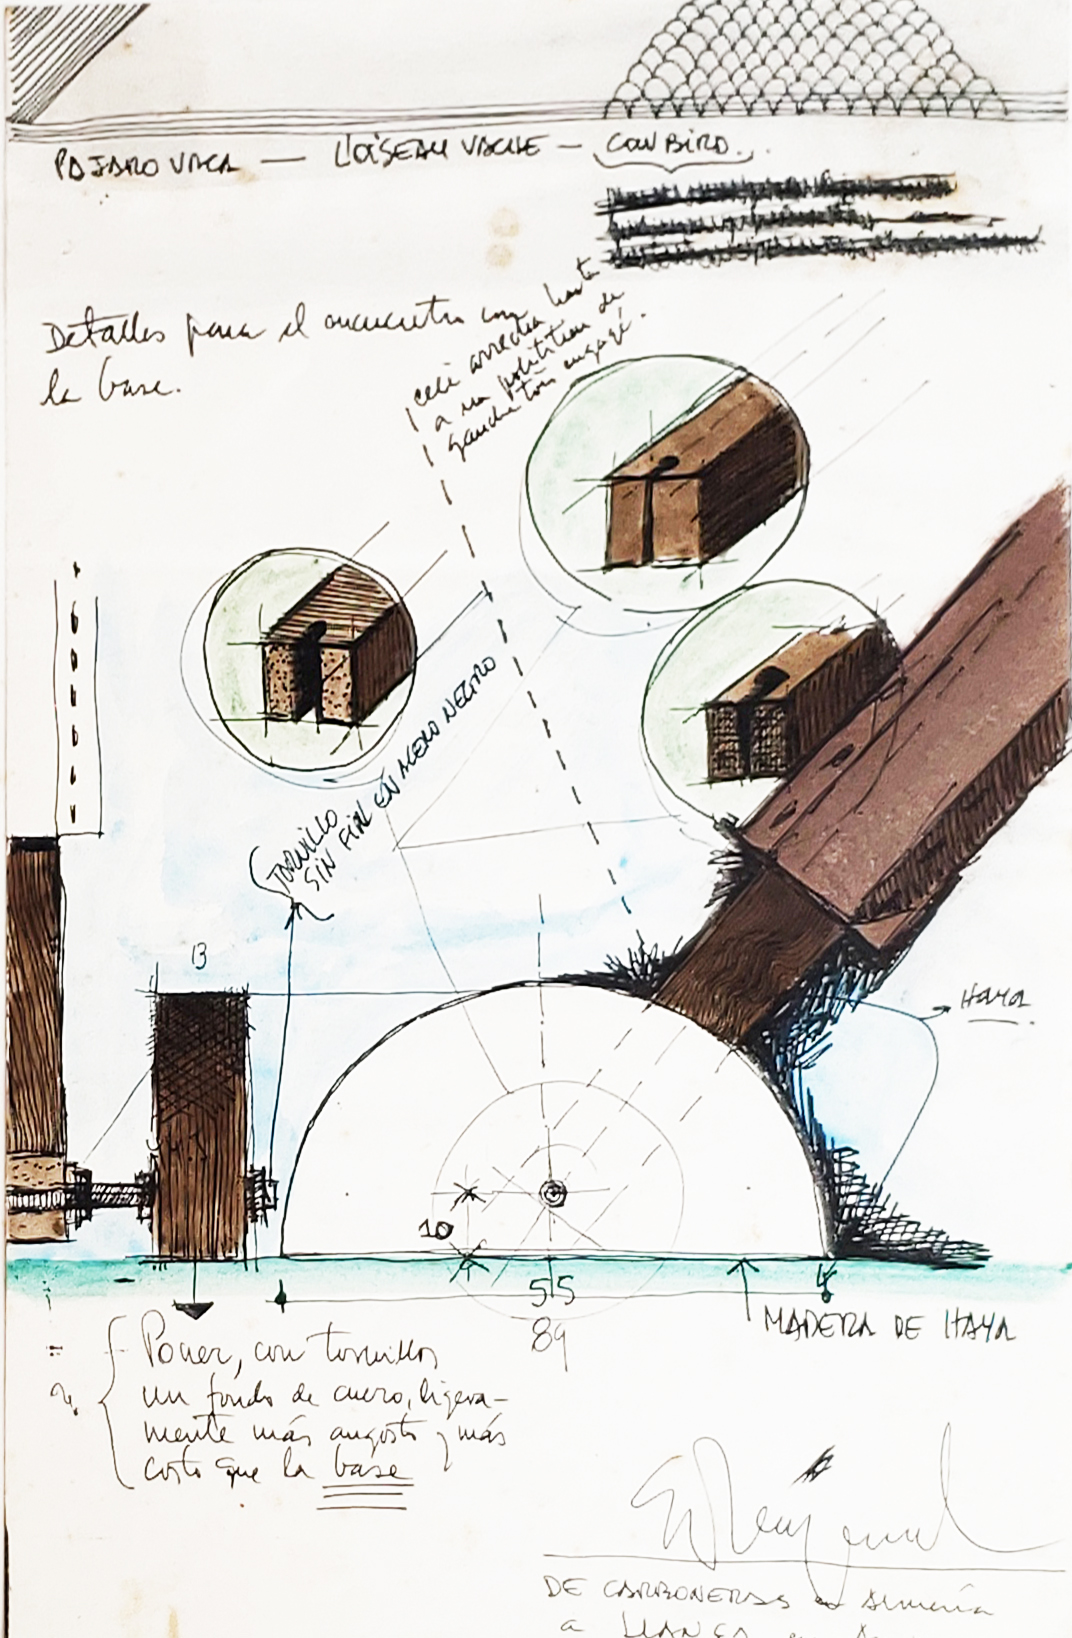 PAJARO VACA — L'OISEAU VACHE — COW BIRD.
Detalles para el encuentro con
la base.
hasta
ceci
a un de
gauche très engagé.
TORNILLO
SIN FIN EN ACERO NEGRO
13
HAYA
10
55
89
MADERA DE HAYA
Poner, con tornillos
un fondo de cuero, ligera-
mente más angosto y más
corto que la base
DE CARBONERAS Almería
a LLANÇA